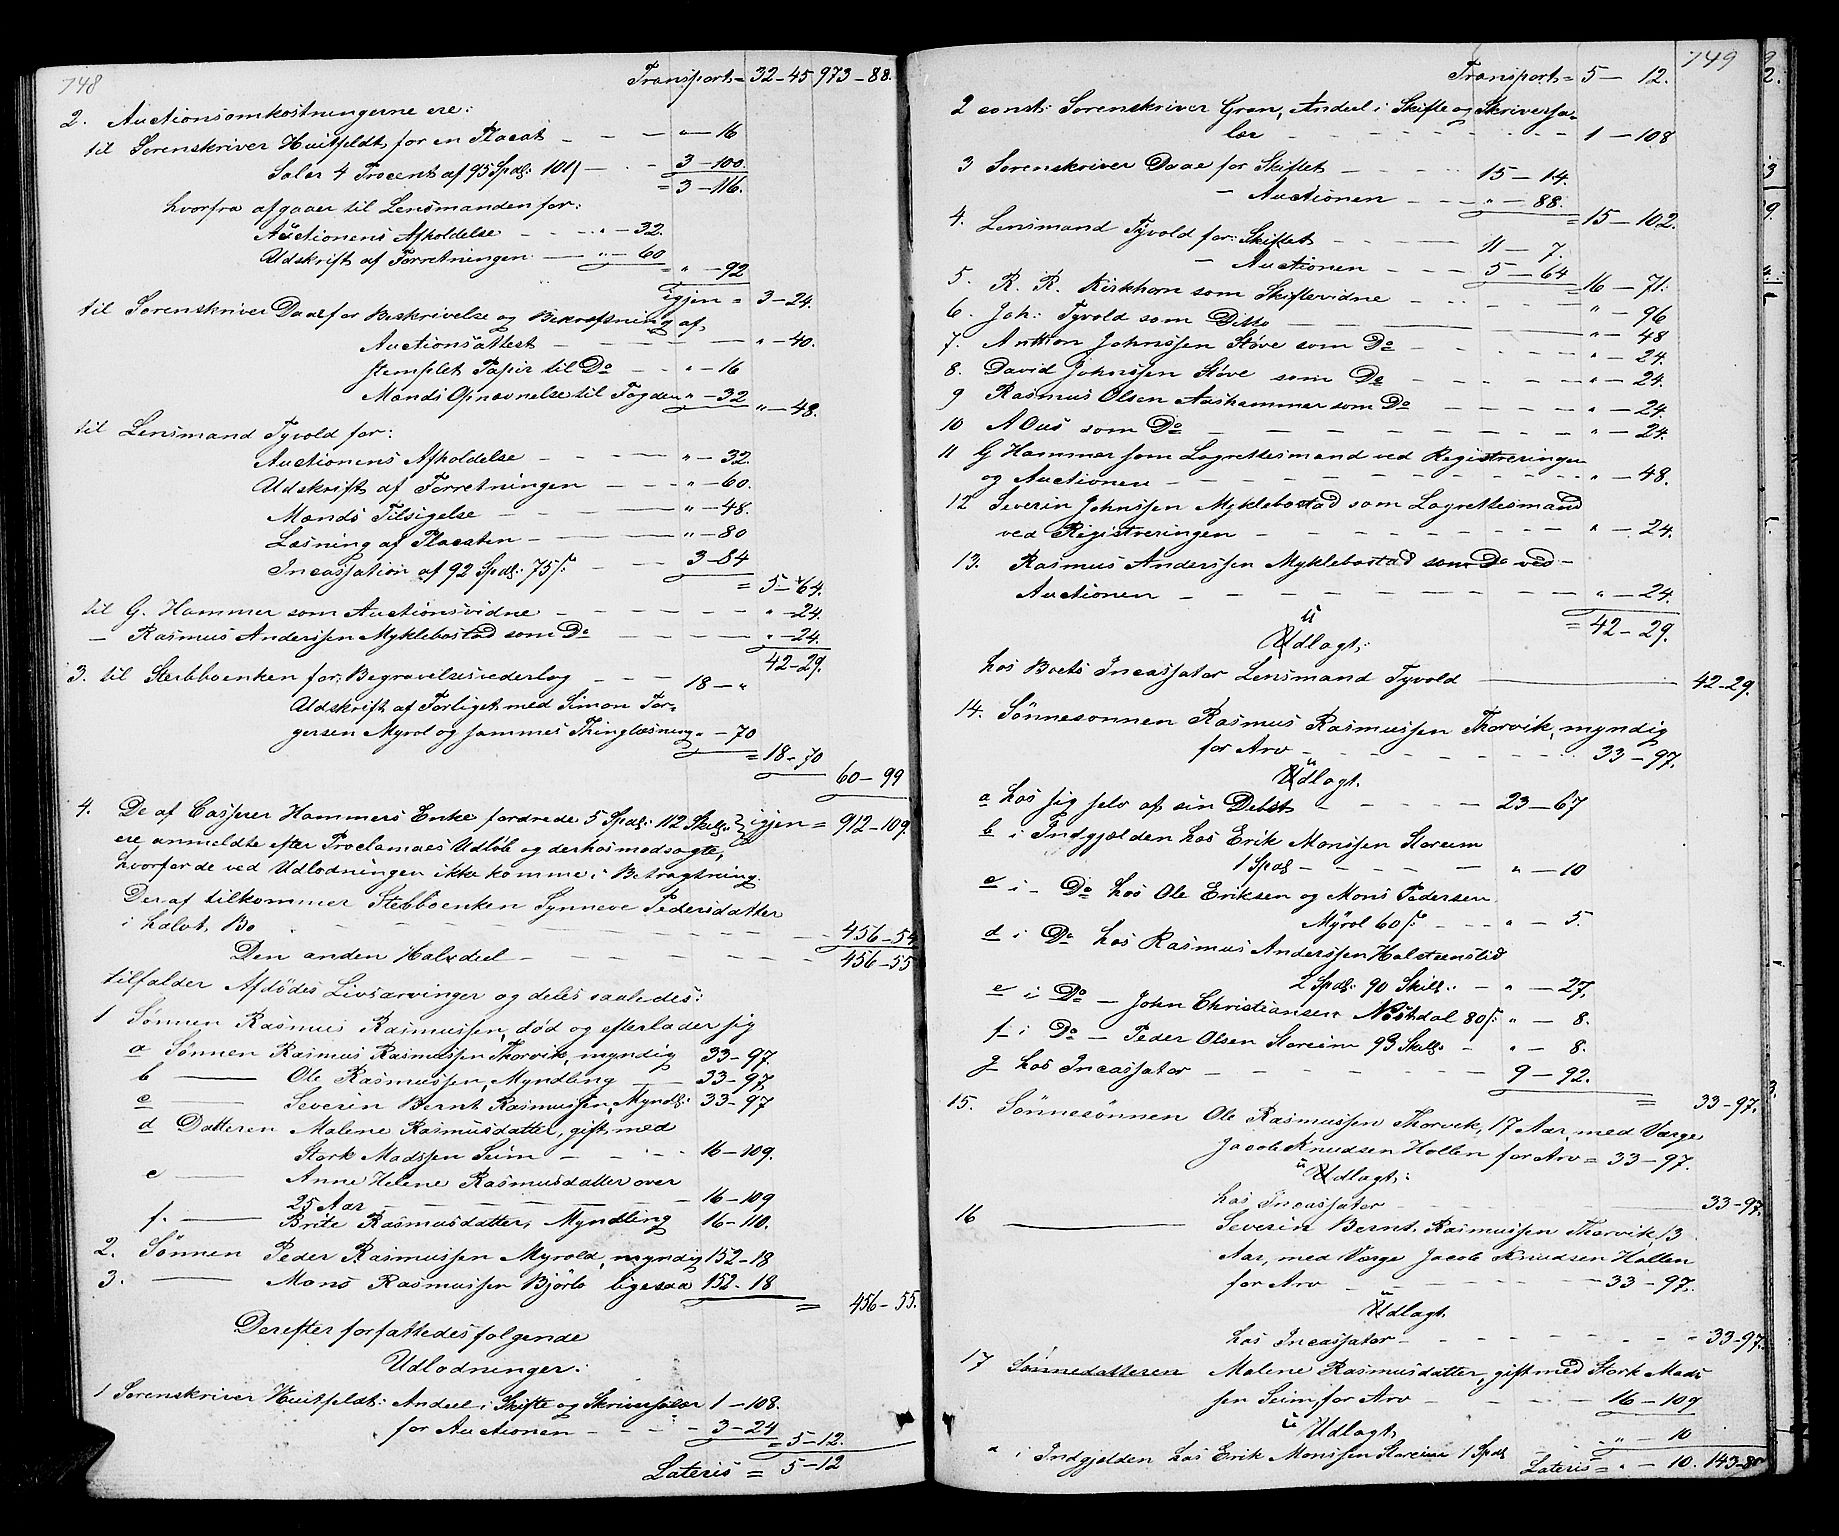 748
Transport = 32-45 973-88.
2. Auctionsomkostningerne ere:
til Sorenskriver Huitfeldt for en Placat - - - " - 16
Salær 4 Procent af 95 Spdl: 101 - - - 3-100.
= 3-116.
hvorfra afgaaer til Lensmanden for:
Auctionens Afholdelse - - - " - 32.
Udskrift af Forretningen - " - 60
= " - 92
igjen = 3-24.
til Sorenskriver Daae for Beskrivelse og Bekræftning af
Auctionsattest - - - " - 40.
stemplet Papir til Do - - " - 16
Mænds Opnævnelse til Tagden " - 32
" - 48.
til Lensmand Tyvold for:
Auctionens Afholdelse - - - " - 32.
Udskrift af Forretningen - - - " - 60.
Mænds Tilsigelse - - - " - 48.
Læsning af Placaten - - - " - 80
Incassation af 92 Spdl: 75 s: - - 3-84
= 5-64.
til G. Hammer som Auctionsvidne - - - " - 24.
- Rasmus Anderssen Myklebostad som Do - - - " - 24.
42-29.
3. til Sterbboenken for: Begravelsesvederlag - - - 18 - "
Udskrift af Forliget med Simon Tor-
gersen Myrol og sammes Thinglæsning " - 70
= 18-70
60-99
4. De af Casper Hammers Enke fordrede 5 Spdl: 112 Skill: } igjen = 912-109.
ere anmeldte efter Proclamaes Udløb og derhos modsagte,
hvorfor de ved Udlodningen ikke komme i Betragtning.
Deraf tilkommer Stebboenken Synneve Pedersdatter
i halvt Bo - - - 456-54
Den anden Halvdeel - - - 456-55
tilfalder Afdødes Livsarvinger og deles saaledes:
1 Sønnen Rasmus Rasmussen, død og efterlader sig
a Sønnen Rasmus Rasmussen Thorvik, myndig 33-97.
b — Ole Rasmussen, Myndling - - 33-97,
c — Severin Bernt Rasmussen, Myndl: 33-97
d Datteren Malene Rasmusdatter, gift med
Stork Madssen Seim - - - 16-109.
e — Anne Helene Rasmusdatter over
25 Aar - - - 16-109
f. — Brite Rasmusdatter, Myndling 16-110.
2. Sønnen Peder Rasmussen Myrold, myndig 152-18
3. — Mons Rasmussen Bjørlo ligesaa 152-18
= 456-55.
Derefter forfattedes følgende
Udlodninger:
1 Sorenskriver Huitfeldt: Andeel i Skifte og Skriversalær 1-108.
for Auctionen - - - 3-24
= 5-12.
Lateris = 5-12
749
Transport = 5-12.
2 const: Sorenskriver Gran, Andeel i Skifte og Skriversa-
lær - - - 1-108
3 Sorenskriver Daae for Skiftet - - - 15-14.
- Auctionen - - - " - 88.
= 15-102.
4. Lensmand Tyvold for: Skiftet - - - 11-7.
- Auctionen - - - 5-64
= 16-71.
5. R. R. Kirkhorn som Skiftevidne - - - " - 96
6. Joh: Tyvold som Ditto - - - " - 48
7. Anthon Johnssen Støve som Do - - - " - 24.
8. David Johnssen Støve som Do - - - " - 24.
9 Rasmus Olsen Aashammer som Do - - - " - 24.
10 A Ous som Do - - - " - 24.
11 G Hammer som Lagrettesmand ved Registreringen
og Auctionen - - - " - 48.
12 Severin Johnssen Myklebostad som Lagrettesmand
ved Registreringen - - - " - 24.
13. Rasmus Anderssen Myklebostad som Do ved -
Auctionen - - - " - 24.
= 42-29.
Udlagt:
hos Boets Incassator Lensmand Tyvold — 42-29.
14. Sønnesonnen Rasmus Rasmussen Thorvik, myndig
for Arv - - - 33-97.
Udlagt
a hos sig selv af sin Deelst - - - 23-67
b i Indgjælden hos Erik Monssen Storeim
1 Spdl - - - " - 10
c i - Do hos Ole Eriksen og Mons Pedersen
Myrol 60 s: - - - " - 5.
d i Do hos Rasmus Anderssen Halsteenslid
2 Spdl: 90 Skill: - " - 27,
e i Do - John Christiansen Nøstdal 80 s: " - 8.
f i Do - Peder Olsen Storeim 93 Skill: - " - 8.
g hos Incassator - - - 9-92.
= 33-97.
15. Sønnesønnen Ole Rasmussen Thorvik, 17 Aar, med Værge
Jacob Knudsen Hollen for Arv = 33-97.
Udlagt:
hos Incassator - - - 33-97.
16 — Severin Bernt Rasmussen Thorvik, 13
Aar, med Værge Jacob Knudsen Hollen
for Arv - - - 33-97.
Udlagt
hos Incassator - - - 33-97.
17 Sønnedatteren Malene Rasmusdatter, gift med Stork Mads-
sen Seim, for Arv - - - 16-109
Udlagt
a i Indgjælden hos Erik Monssen Storeim 1 Spdl - " - 10
Lateris = " - 10. 143-80